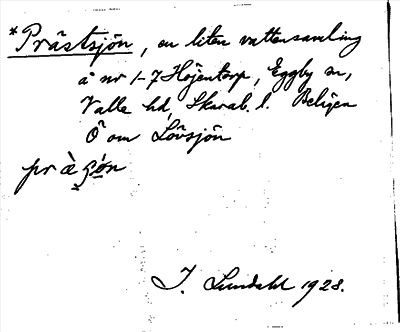 *Prästsjön, en liten vattensamling
å nr 1-7 Höjentorp, Eggby sn,
Valle hd, Skarab. l. Belägen
Ö om Lövsjön
præ̀ʂön
J. Lundahl 1928.